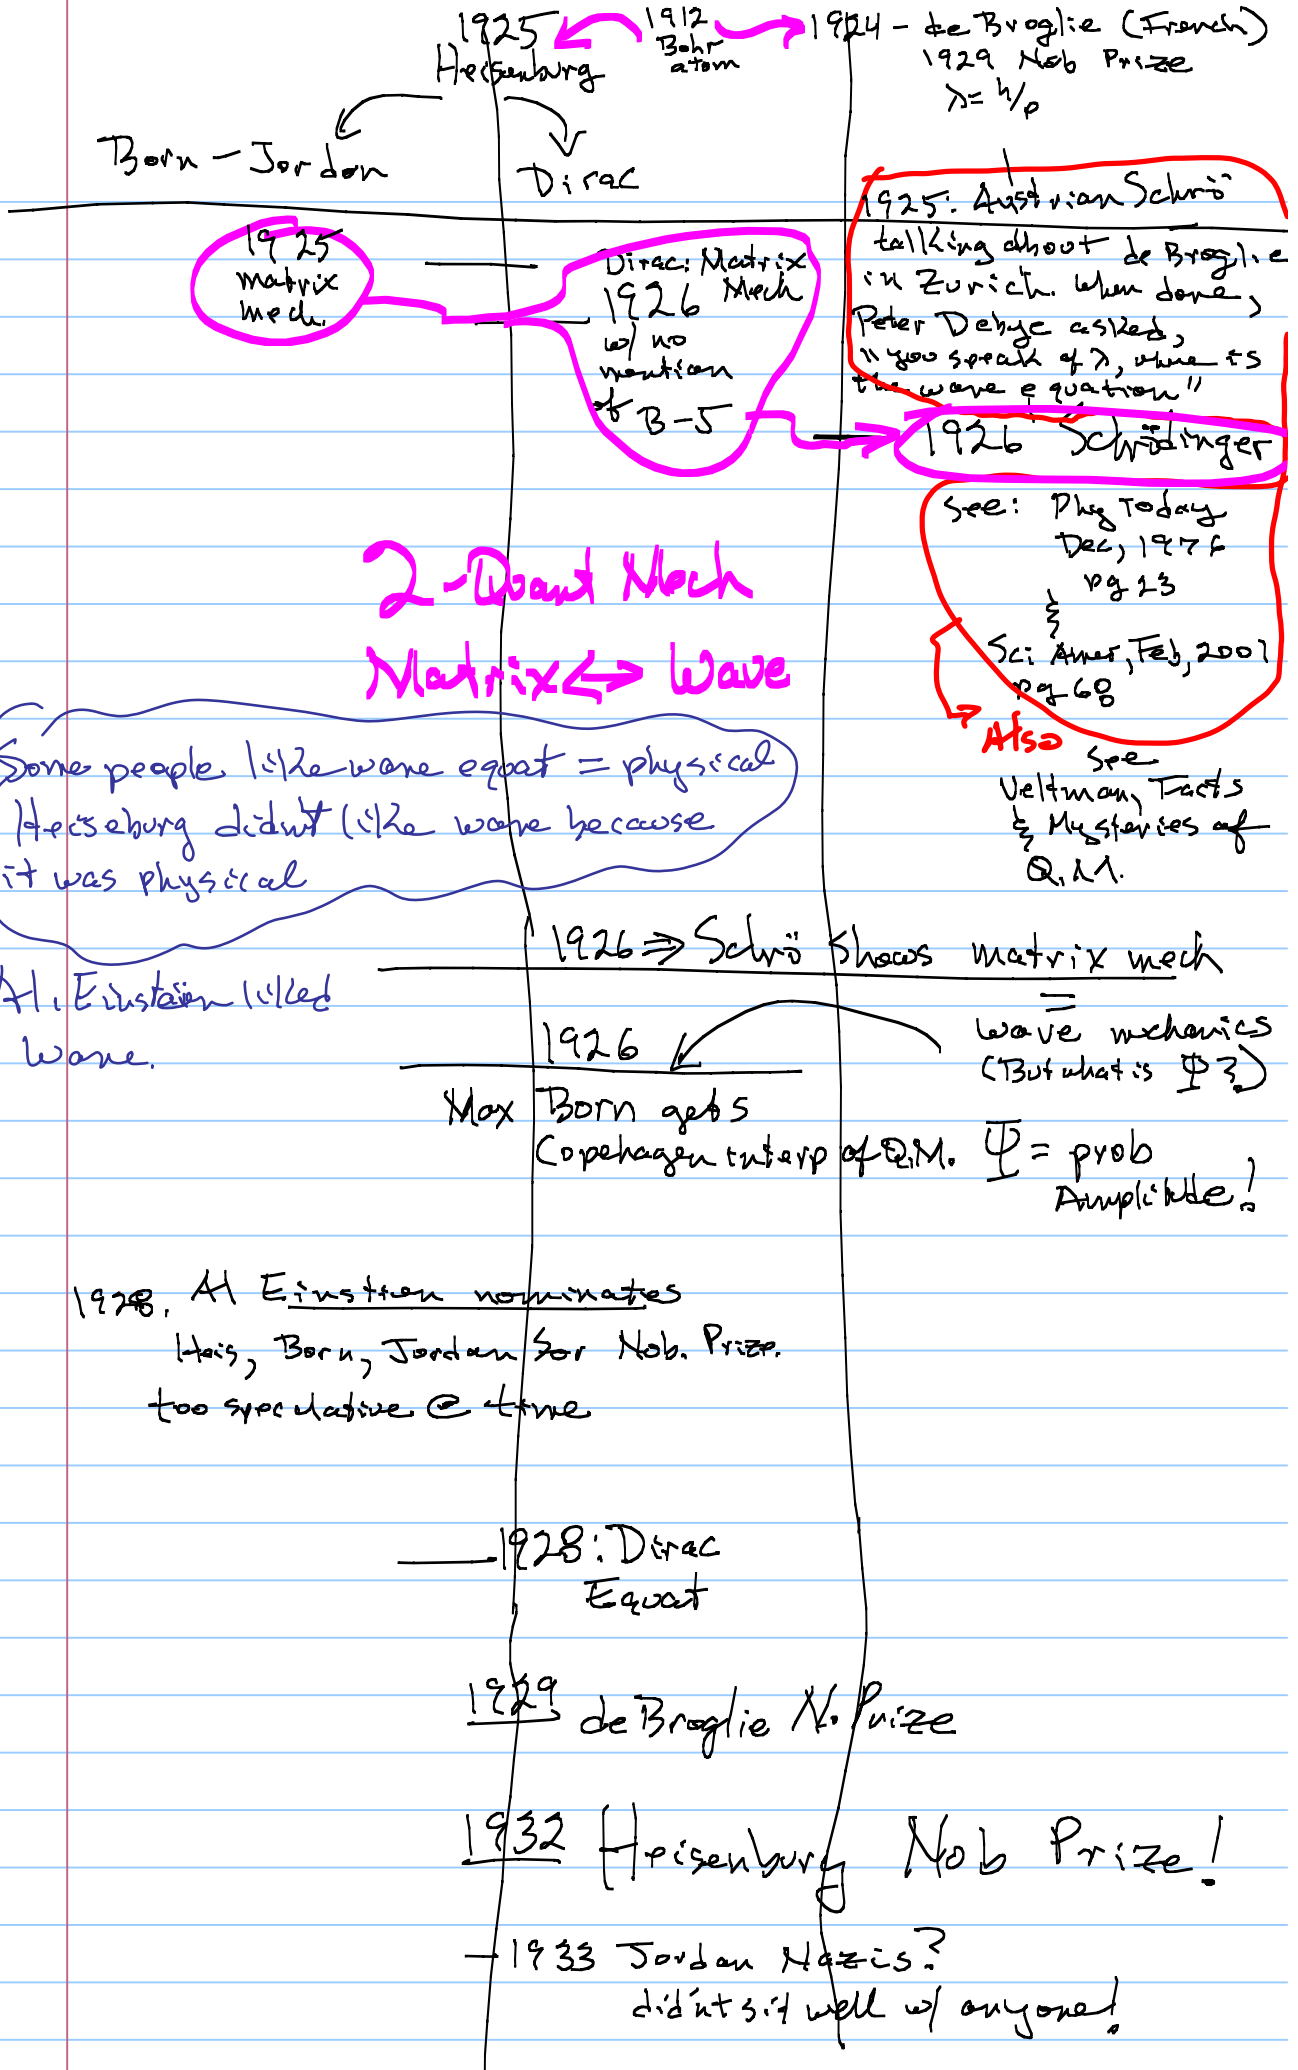 1925
Heisenburg
1912
Bohr
atom
1924 - de Broglie (French)
1929 Nob Prize
λ = h/p
Born - Jordan
Dirac
1925
matrix
mech.
Dirac: Matrix
1926 Mech
w/ no
mention
of B-J
1925: Austrian Schrö
talking about de Broglie
in Zurich. When done,
Peter Debye asked,
"you speak of λ, where is
the wave equation"
1926 Schrödinger
see: Phy Today
Dec, 1976
pg 23
&
Sci Amer, Feb, 2001
pg 68
Also
see
Veltman, Facts
& Mysteries of
Q.M.
2-Quant Mech
Matrix ↔ Wave
Some people like wave equat = physical
Heiseburg didn't like wave because
it was physical
Al. Einstein liked
wave.
1926 ⇒ Schrö Shows matrix mech
=
wave mechanics
(But what is Ψ?)
1926
Max Born gets
Copehagen interp of Q.M. Ψ = prob
Amplitude!
1928. Al Einstien nominates
Heis, Born, Jordan for Nob. Prize.
too speculative @ time
1928: Dirac
Equat
1929 de Broglie N. Prize
1932 Heisenburg Nob Prize!
- 1933 Jordan Nazis?
did'nt sit well w/ anyone!